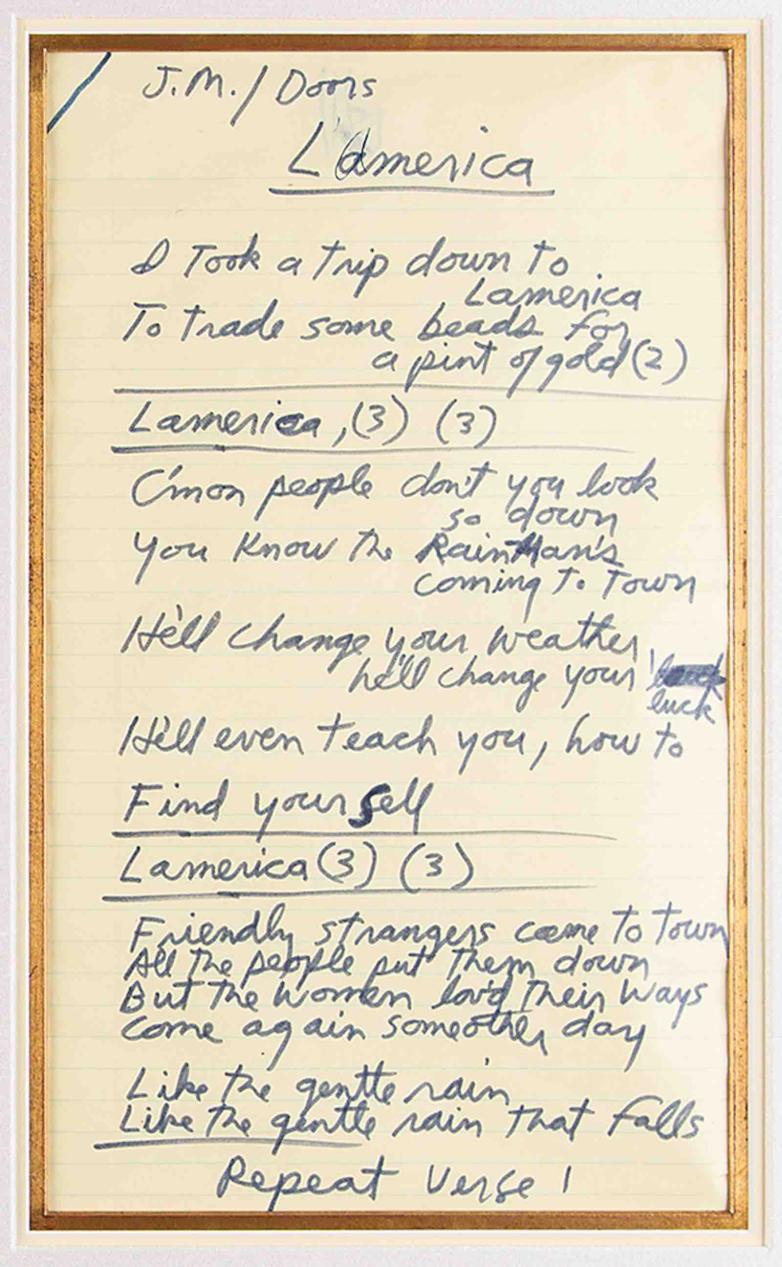 J.M./Doors
L'america
I Took a trip down to
Lamerica
To trade some beads for
a pint of gold (2)
Lamerica, (3) (3)
C'mon people don't you look
so down
You Know the RainMan's
coming To Town
He'll change your weather,
he'll change your
luck
He'll even teach you, how to
Find yourself
Lamerica (3) (3)
Friendly strangers came to town
All the people put them down
But the women lov'd their ways
Come again someother day
Like the gentle rain
Like the gentle rain that falls
Repeat Verse 1